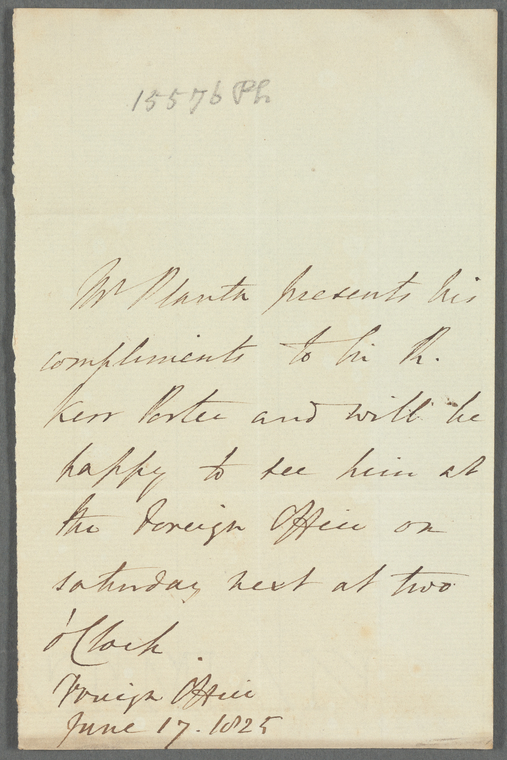 15576 Ph
Mr Planta presents his
compliments to Sir R.
Kerr Porter and will be
happy to see him at
the Foreign Office on
saturday next at two
o'Clock.
Foreign Office
June 17. 1825